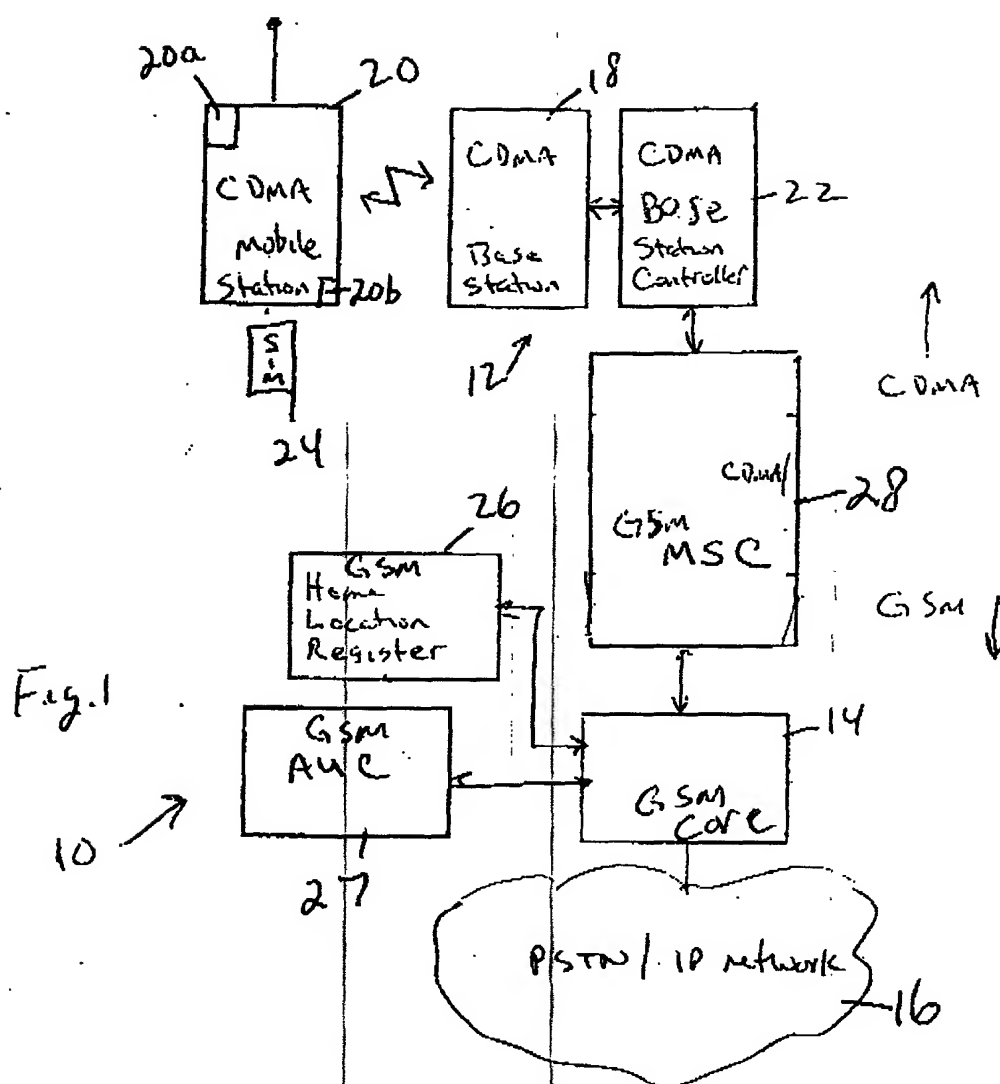 20a
20
18
CDMA
Mobile
Station
20b
CDMA
Base
Station
CDMA
Base
Station
Controller
22
12
SIM
24
CDMA
CDMA/
GSM
MSC
28
GSM
26
GSM
Home
Location
Register
Fig.1
GSM
AUC
27
10
14
GSM
Core
PSTN / IP network
16